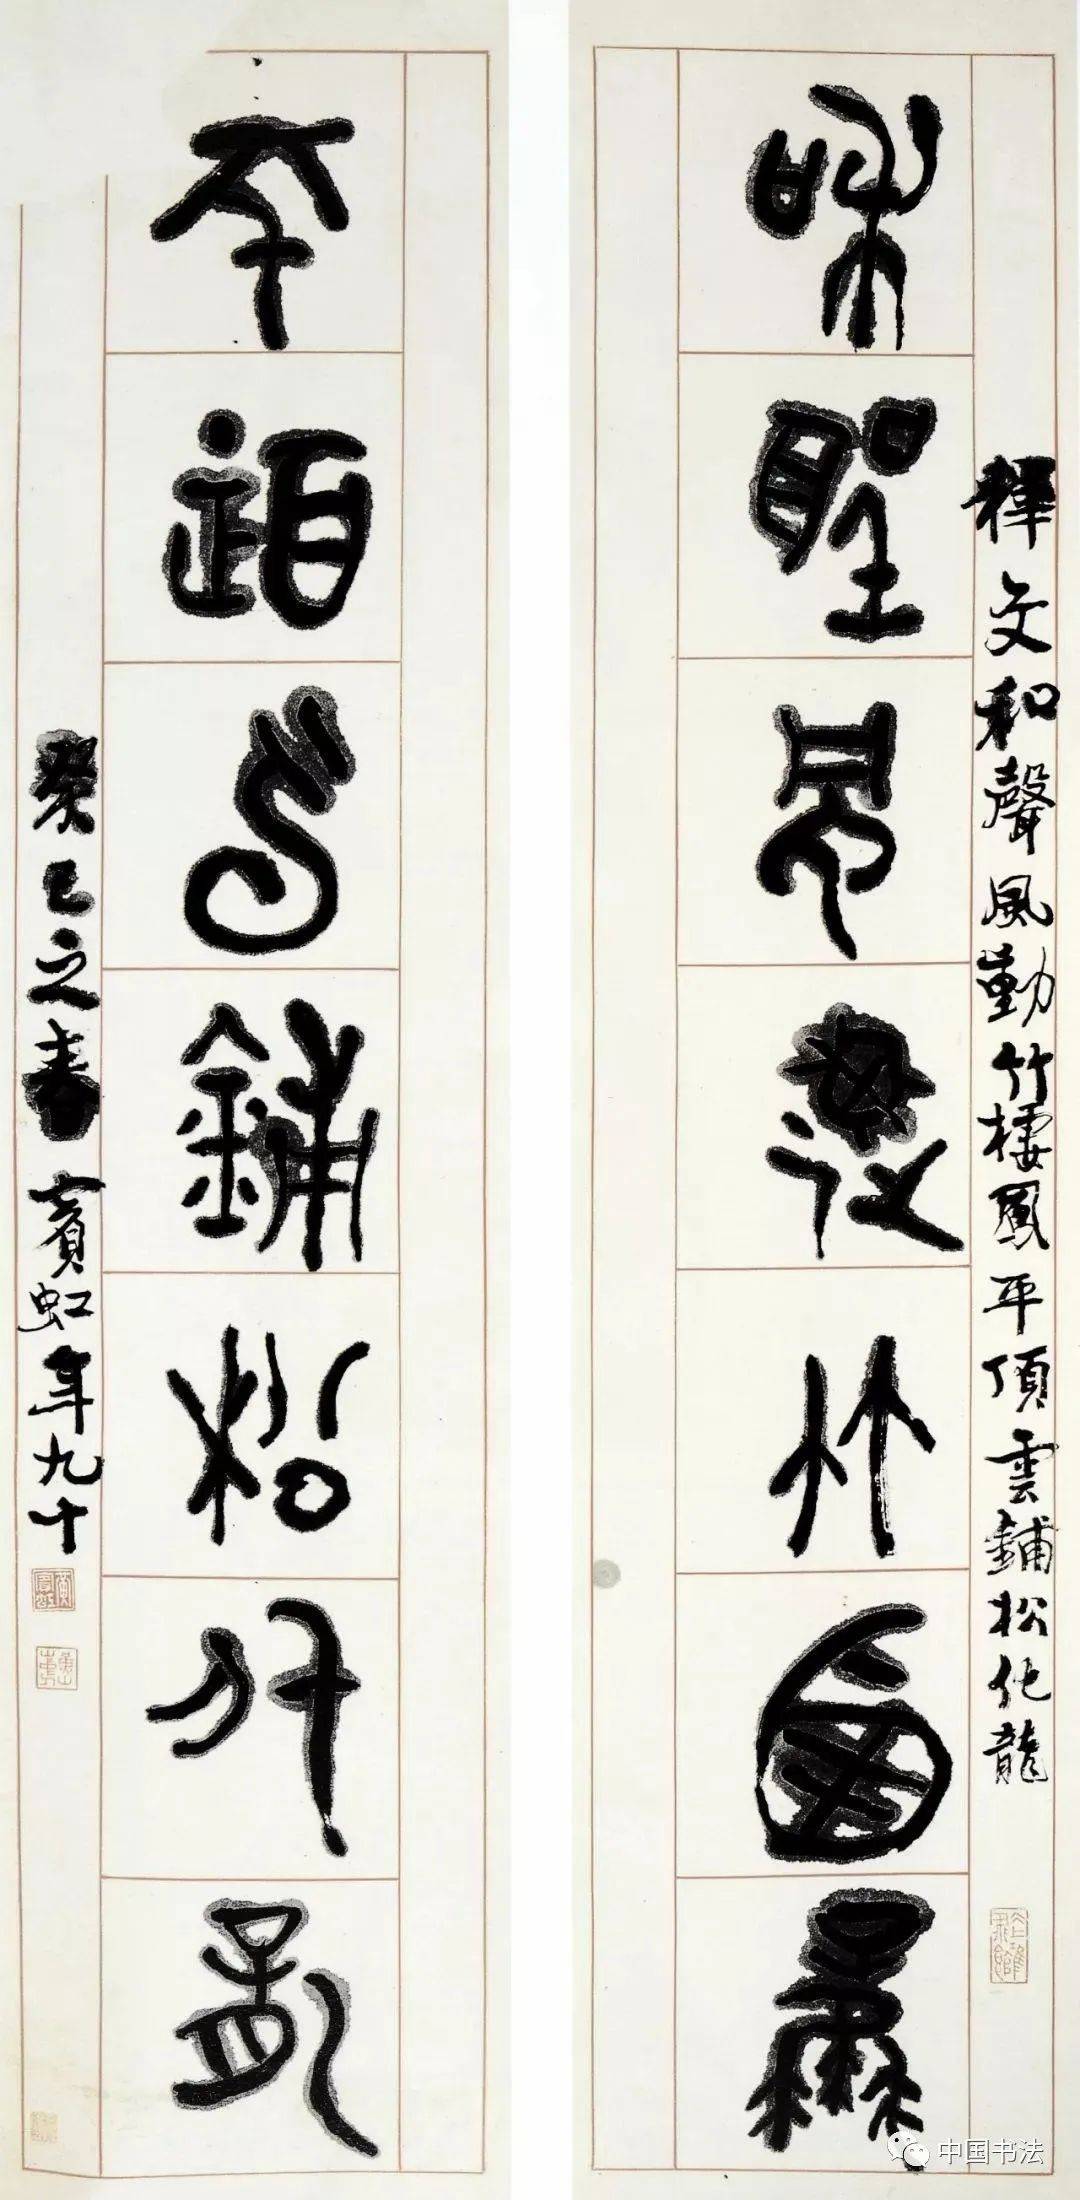 和聲風勤竹棲鳳
釋文和聲風勤竹棲鳳平頂雲鋪松化龍
平頂雲鋪松化龍
癸巳之春賓虹年九十
黃賓虹
中国书法